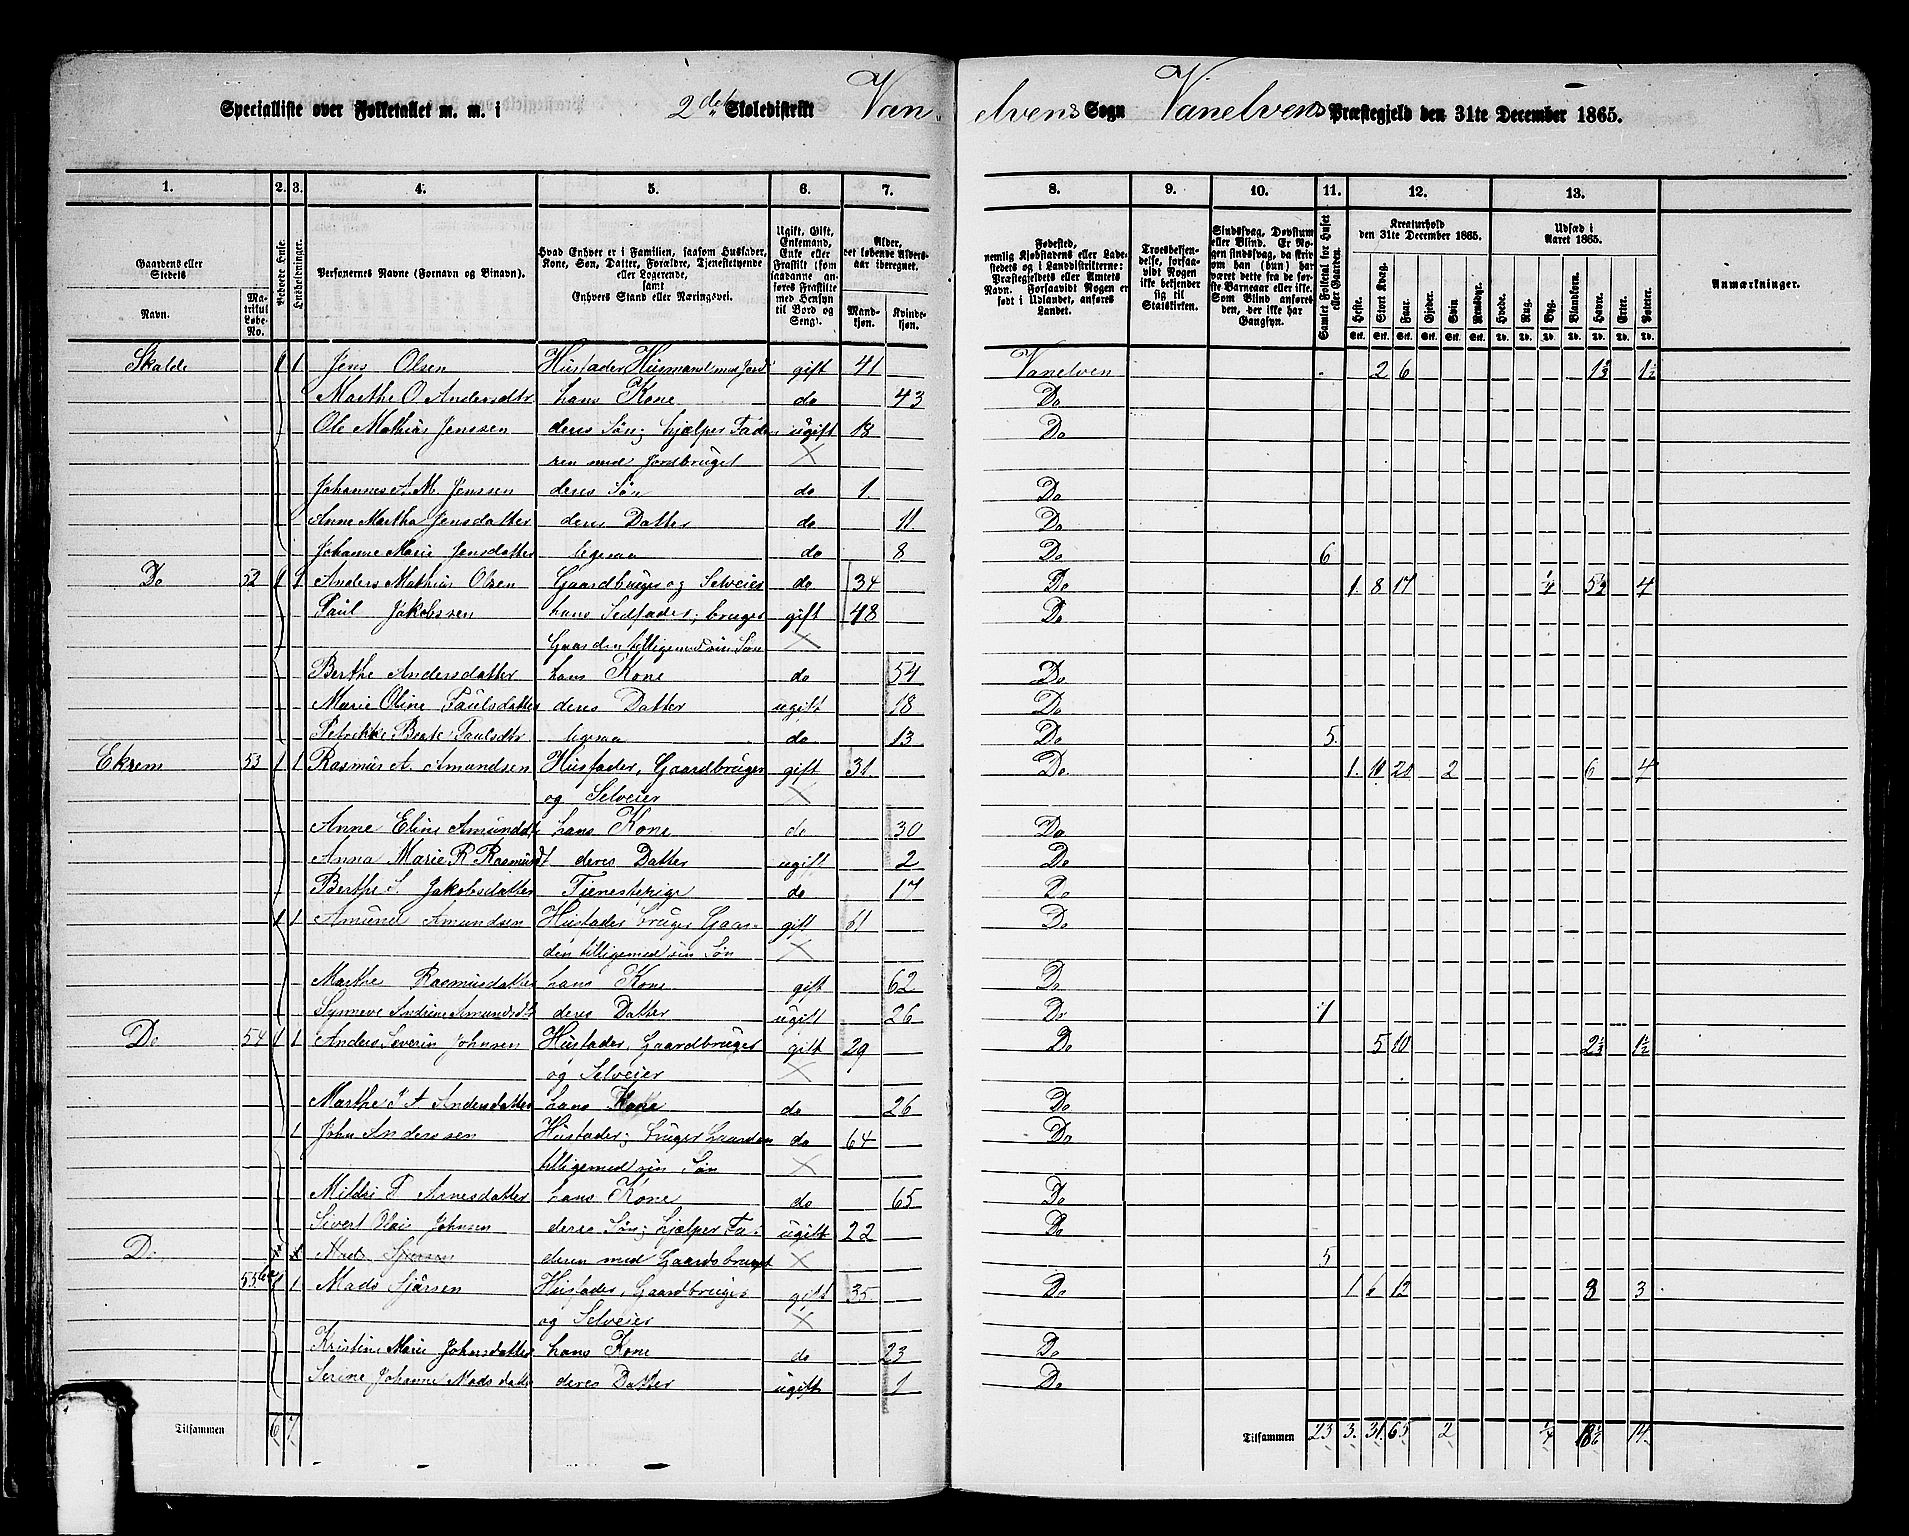 Specialliste over Folketallet m. m. i 2det Skoledistrikt Van elvens Sogn Vanelvens Præstegjeld den 31te December 1865.
1. 2. 3. 4. 5. 6. 7. 8. 9. 10. 11. 12. 13.
Gaardens eller Stedets
Navn.
Matrikul Løbe-No.
Beboede Huse.
Husholdninger.
Personernes Navne (Fornavn og Binavn).
Hvad Enhver er i Familien, saasom Husfader, Kone, Søn, Datter, Forældre, Tjenestetyende eller Logerende, samt Enhvers Stand eller Næringsvei.
Ugift, Gift, Enkemand, Enke eller Fraskilt (som saadanne anføres Fraskilte med Hensyn til Bord og Seng).
Alder, det løbende Alders-aar iberegnet.
Mandkjøn. Kvindekjøn.
Fødested, nemlig Kjøbstadens eller Ladestedets og i Landdistrikterne: Præstegjeldets eller Amtets Navn. Forsaavidt Nogen er født i Udlandet, anføres Landet.
Troesbekjendelse, forsaavidt Nogen ikke bekjender sig til Statskirken.
Sindssvag, Døvstum eller Blind. Er Nogen sindssvag, da skrives om han (hun) har været dette fra de første Barneaar eller ikke. Som Blind anføres den, der ikke har Gangsyn.
Samlet Folketal for Huset eller Gaarden.
Kreaturhold den 31te December 1865.
Heste. Stort Kvæg. Faar. Gjeder. Svin. Rensdyr.
Udsæd i Aaret 1865.
Hvede. Rug. Byg. Blandkorn. Havre. Erter. Poteter.
Anmærkninger.
Skalde 1 1 Jens Olsen Husfader, Husmand med Jord gift 41 Vanelven 2 6 1½ 1½
Marthe O. Andersdtr hans Kone do 43 Do
Ole Mathias Jenssen deres Søn; hjælper Fade- ugift 18 Do
ren med Jordbruget
Johannes A. M. Jenssen deres Søn do 1. Do
Anne Martha Jensdatter deres Datter do 11 Do
Johanne Marie Jensdatter ligesaa do 8 Do 6
Do 52 1 1 Anders Mathias Olsen Gaardbruger og Selveier do 34 Do 1. 8 17 ¼ 5½ 4
Paul Jakobssen hans Stedfader; bruger gift 48 Do
Gaarden tilligemed sin Søn
Berthe Andersdatter hans Kone do 54 Do
Marie Oline Paulsdatter deres Datter ugift 18 Do
Petrikke Beate Paulsdtr ligesaa do 13 Do 5.
Ekrem 53 1 1 Rasmus A. Amundsen Husfader, Gaardbruger gift 31. Do 1. 10 20 2 6 4
og Selveier
Anne Eline Amundsdt hans Kone do 30 Do
Anna Marie R Rasmusdt deres Datter ugift 2 Do
Berthe S. Jakobsdatter Tjenestepige do 17 Do
1 1 Amund Amundsen Husfader bruger Gaar- gift 61 Do
den tilligemed sin Søn
Marthe Rasmusdatter hans Kone gift 62 Do
Synneve Andrine Amundsdt deres Datter ugift 26 Do 7
Do 54 1 1 Anders Severin Johnsen Husfader, Gaardbruger gift 29 Do 5 10 2⅓ 1½
og Selveier
Marthe J A Andersdatter hans Kone do 26 Do
1 John Anderssen Husfader; bruger Gaarden do 64 Do
tilligemed sin Søn
Mildri P Arnesdatter hans Kone do 65 Do
Sivert Olai Johnsen deres Søn; hjælper Fa- ugift 22 Do
Do Mads Sjursen deren med Gaardsbruget 5
55 1 1 Mads Sjursen Husfader, Gaardbruger gift 35. Do 1 6 12 3 3
og Selveier
Kristine Marie Johnsdatter hans Kone do 23 Do
Serine Johanne Madsdatter deres Datter ugift 1 Do
Tilsammen 6 7
Tilsammen 23 3. 31. 65 2 ¼ 18⅙ 14